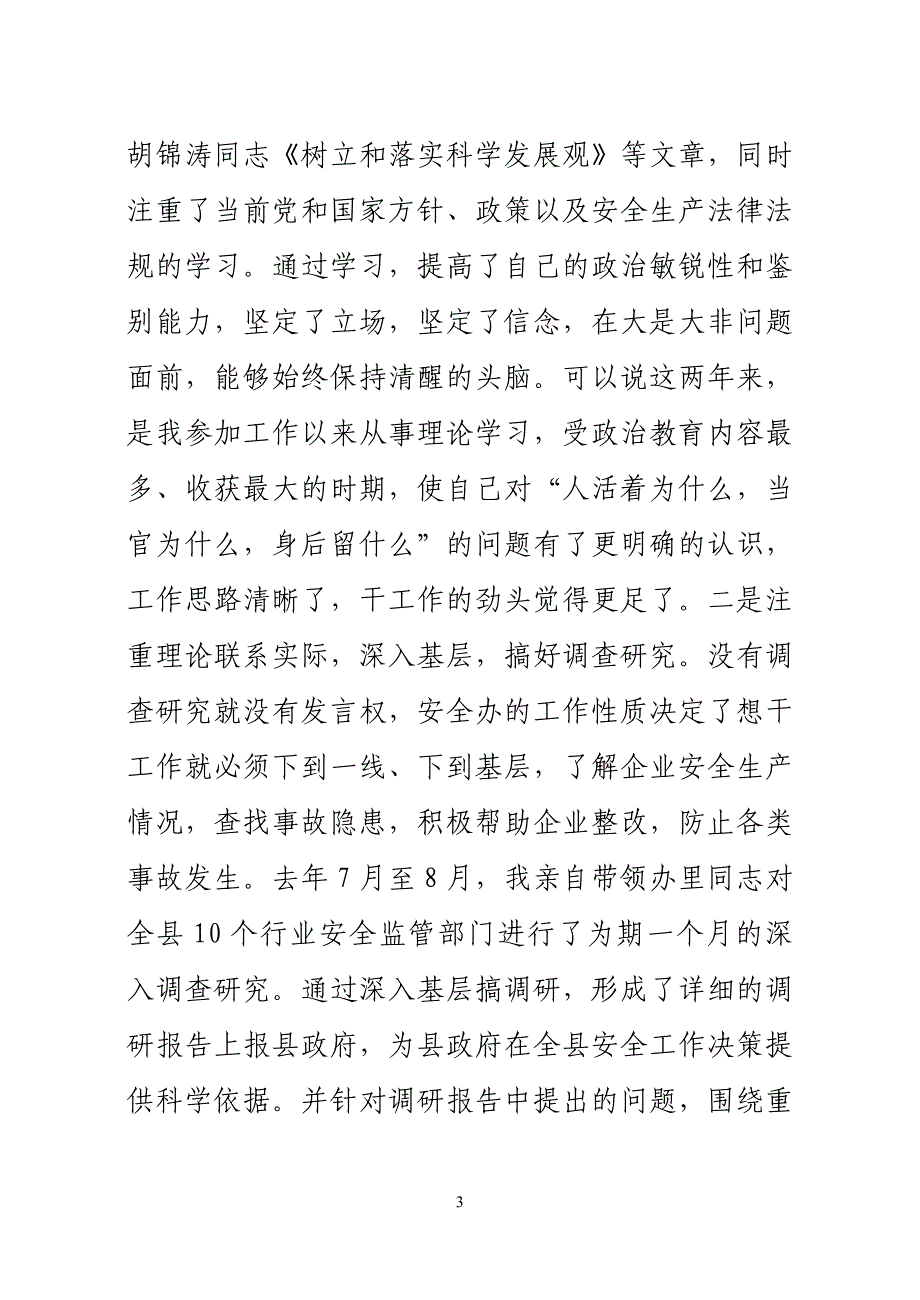 胡锦涛同志《树立和落实科学发展观》等文章，同时
注重了当前党和国家方针、政策以及安全生产法律法
规的学习。通过学习，提高了自己的政治敏锐性和鉴
别能力，坚定了立场，坚定了信念，在大是大非问题
面前，能够始终保持清醒的头脑。可以说这两年来，
是我参加工作以来从事理论学习，受政治教育内容最
多、收获最大的时期，使自己对“人活着为什么，当
官为什么，身后留什么”的问题有了更明确的认识，
工作思路清晰了，干工作的劲头觉得更足了。二是注
重理论联系实际，深入基层，搞好调查研究。没有调
查研究就没有发言权，安全办的工作性质决定了想干
工作就必须下到一线、下到基层，了解企业安全生产
情况，查找事故隐患，积极帮助企业整改，防止各类
事故发生。去年 7 月至 8 月，我亲自带领办里同志对
全县 10 个行业安全监管部门进行了为期一个月的深
入调查研究。通过深入基层搞调研，形成了详细的调
研报告上报县政府，为县政府在全县安全工作决策提
供科学依据。并针对调研报告中提出的问题，围绕重
3